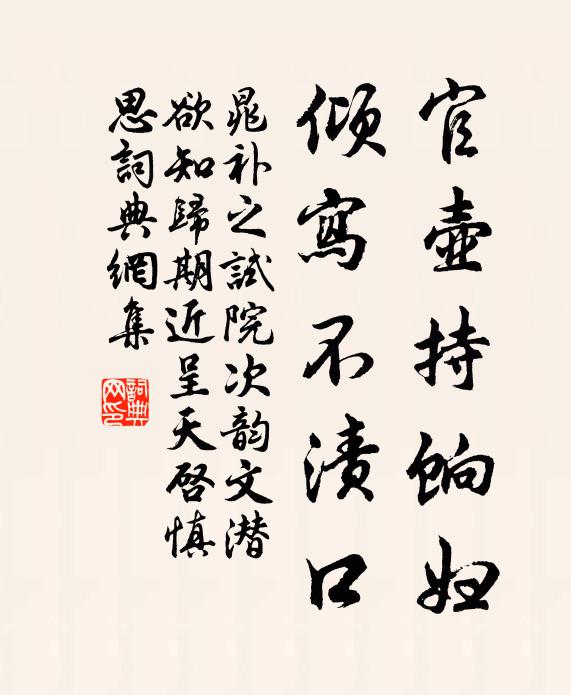 官壺持餉妇
傾寫不漬口
晁补之試院次韵文潜
欲知歸期近呈天啓慎
思詞典網集
詞典
网印